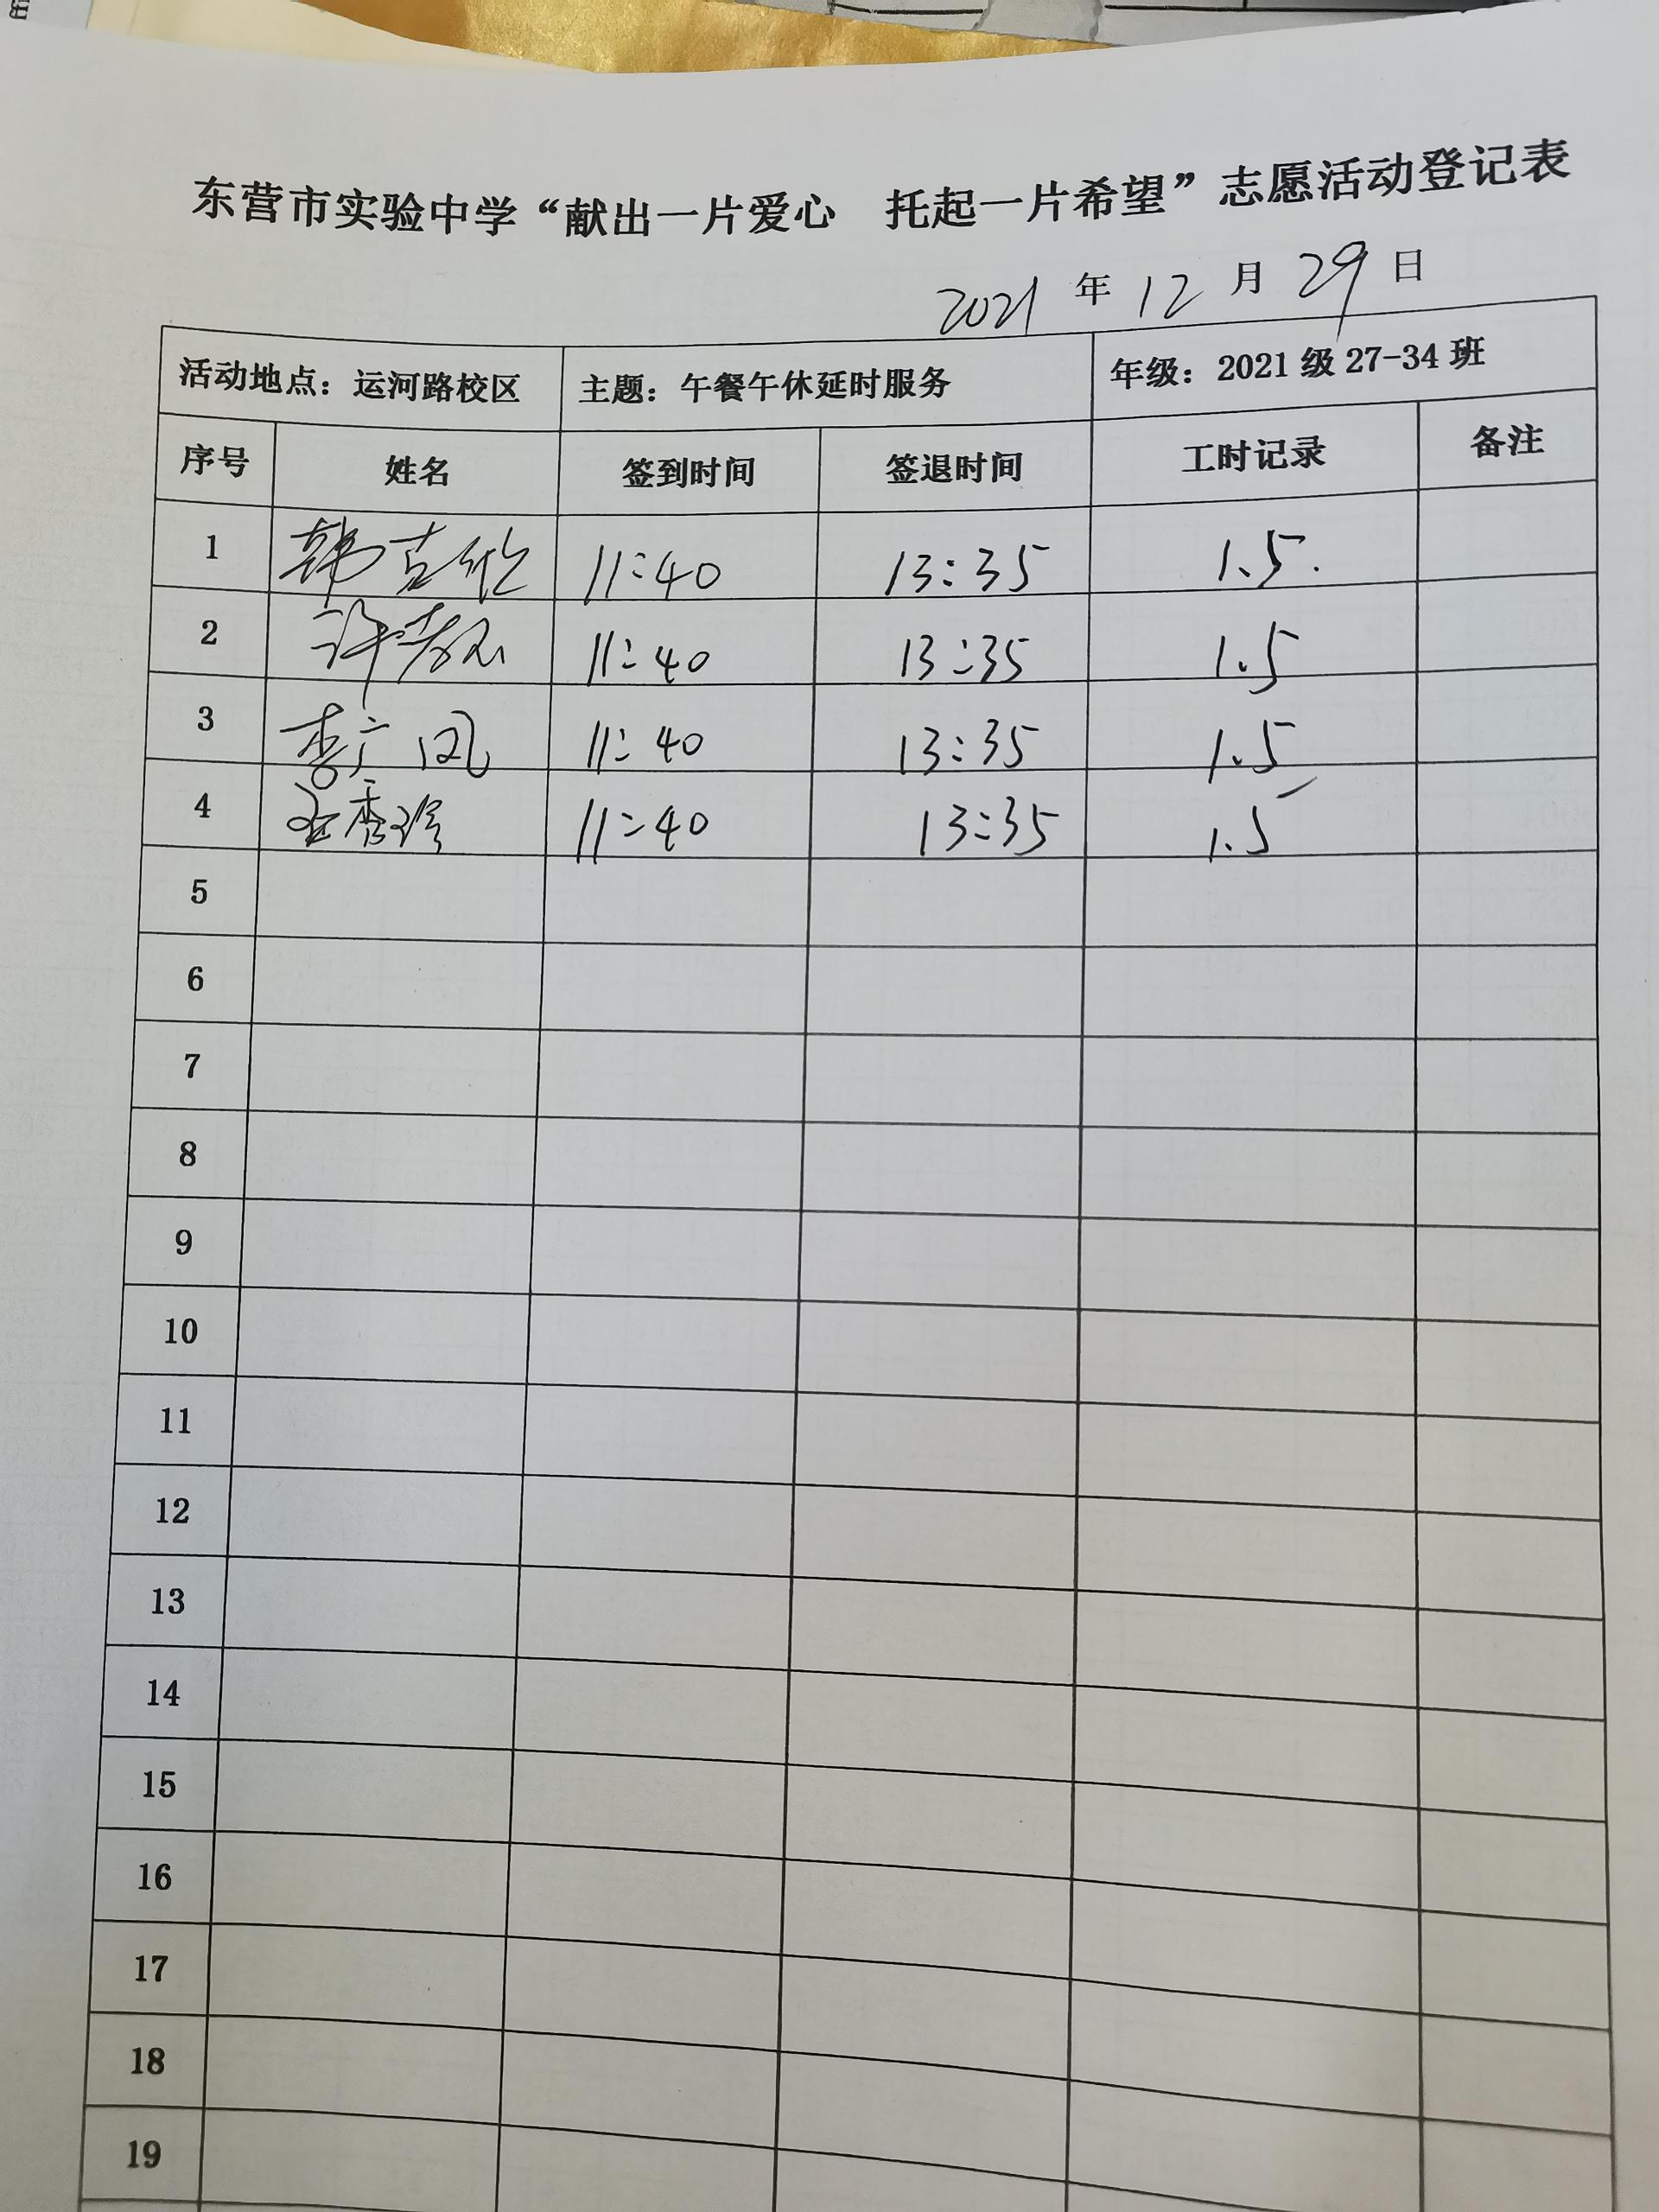 东营市实验中学“献出一片爱心 托起一片希望”志愿活动登记表
2021 年 12 月 29 日
活动地点：运河路校区 主题：午餐午休延时服务 年级：2021 级 27-34 班
序号 姓名 签到时间 签退时间 工时记录 备注
1 韩克伦 11:40 13:35 1.5.
2 许 11:40 13:35 1.5
3 李广凤 11:40 13:35 1.5
4 秀珍 11:40 13:35 1.5
5
6
7
8
9
10
11
12
13
14
15
16
17
18
19